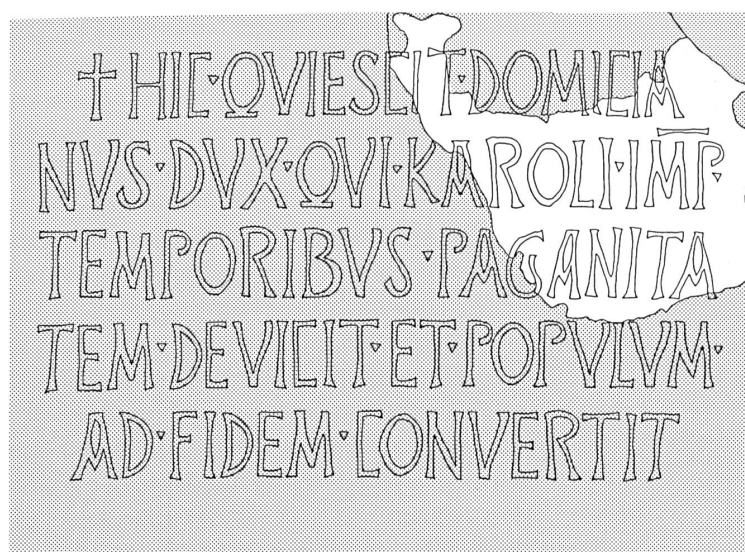 † HIC · QVIESCIT · DOMICIA
NVS · DVX · QVI · KAROLI · IM̅P ·
TEMPORIBVS · PAGANITA
TEM · DEVICIT · ET · POPVLVM ·
AD · FIDEM · CONVERTIT